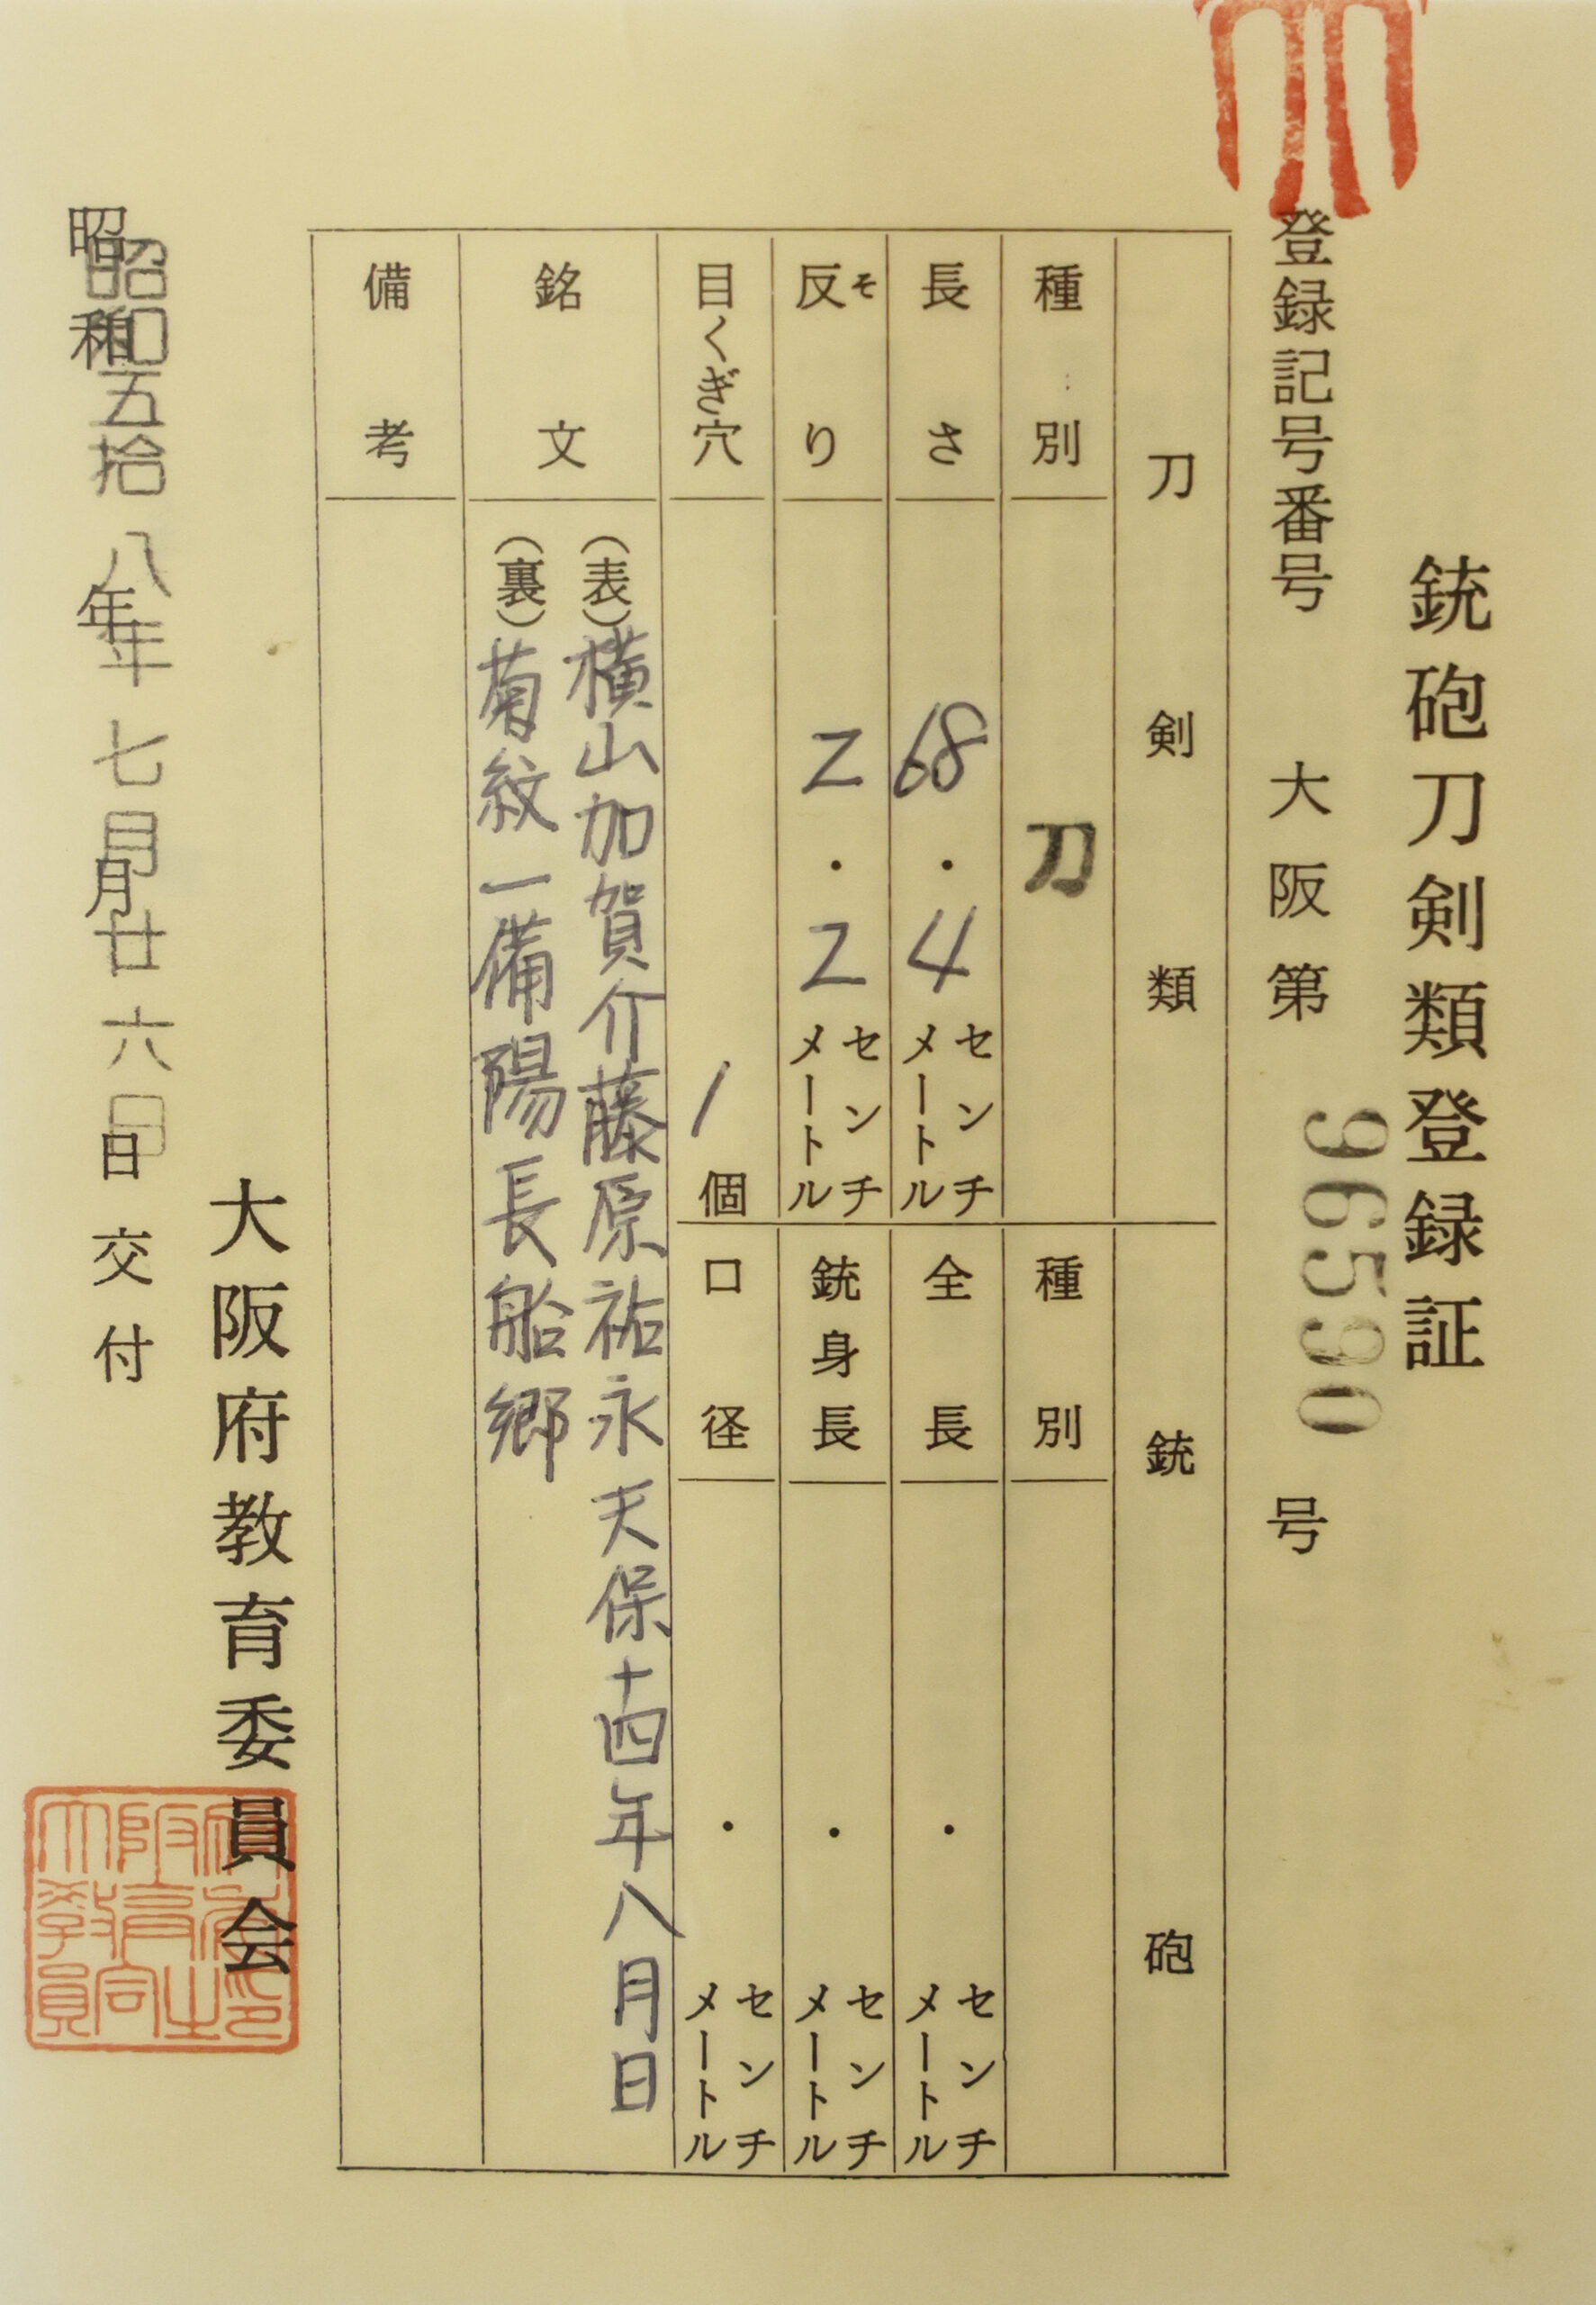 銃砲刀剣類登録証
登録記号番号 大阪第 96590 号
刀剣類
種別 刀
長さ 68.4 センチメートル
反り そ 2.2 センチメートル
目くぎ穴 1 個
銘文
(表)横山加賀介藤原祐永天保十四年八月日
(裏)菊紋一備陽長船郷
備考
銃砲
種別
全長 . センチメートル
銃身長 . センチメートル
口径 . センチメートル
大阪府教育委員会
昭和 昭和五拾八年 年 七月 月 廿六日 日 交付